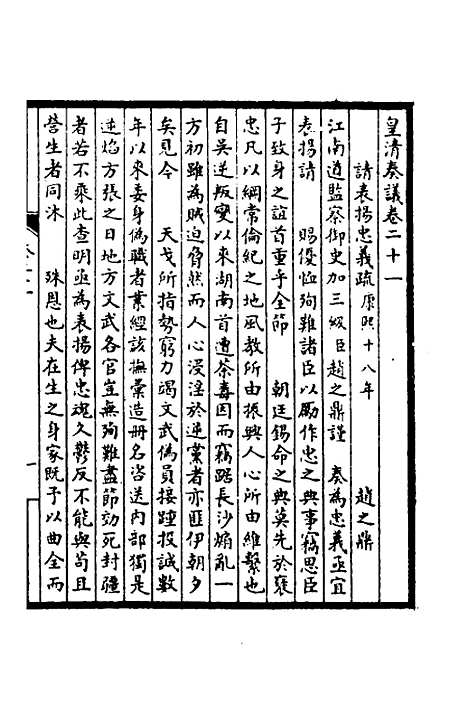 皇清奏議卷二十一
請表揚忠義疏康熙十八年 趙之鼎
江南道監察御史加三級臣趙之鼎謹 奏為忠義亟宜
表揚請 賜優恤殉難諸臣以勵作忠之典事竊思臣
子致身之誼首重乎全節 朝廷錫命之典莫先於褒
忠凡以綱常倫紀之地風教所由振興人心所由維繫也
自吳逆叛變以來湖南首遭荼毒因而竊踞長沙煽亂一
方初雖為賊迫脅然而人心浸淫於逆黨者亦匪伊朝夕
矣見今 天戈所指勢窮力竭文武偽員接踵投誠數
年以來委身偽職者業經該撫彙造冊名咨送內部獨是
逆焰方張之日地方文武各官豈無殉難盡節効死封疆
者若不乘此查明亟為表揚俾忠魂久鬱反不能與苟且
營生者同沐 殊恩也夫在生之身家既予以曲全而